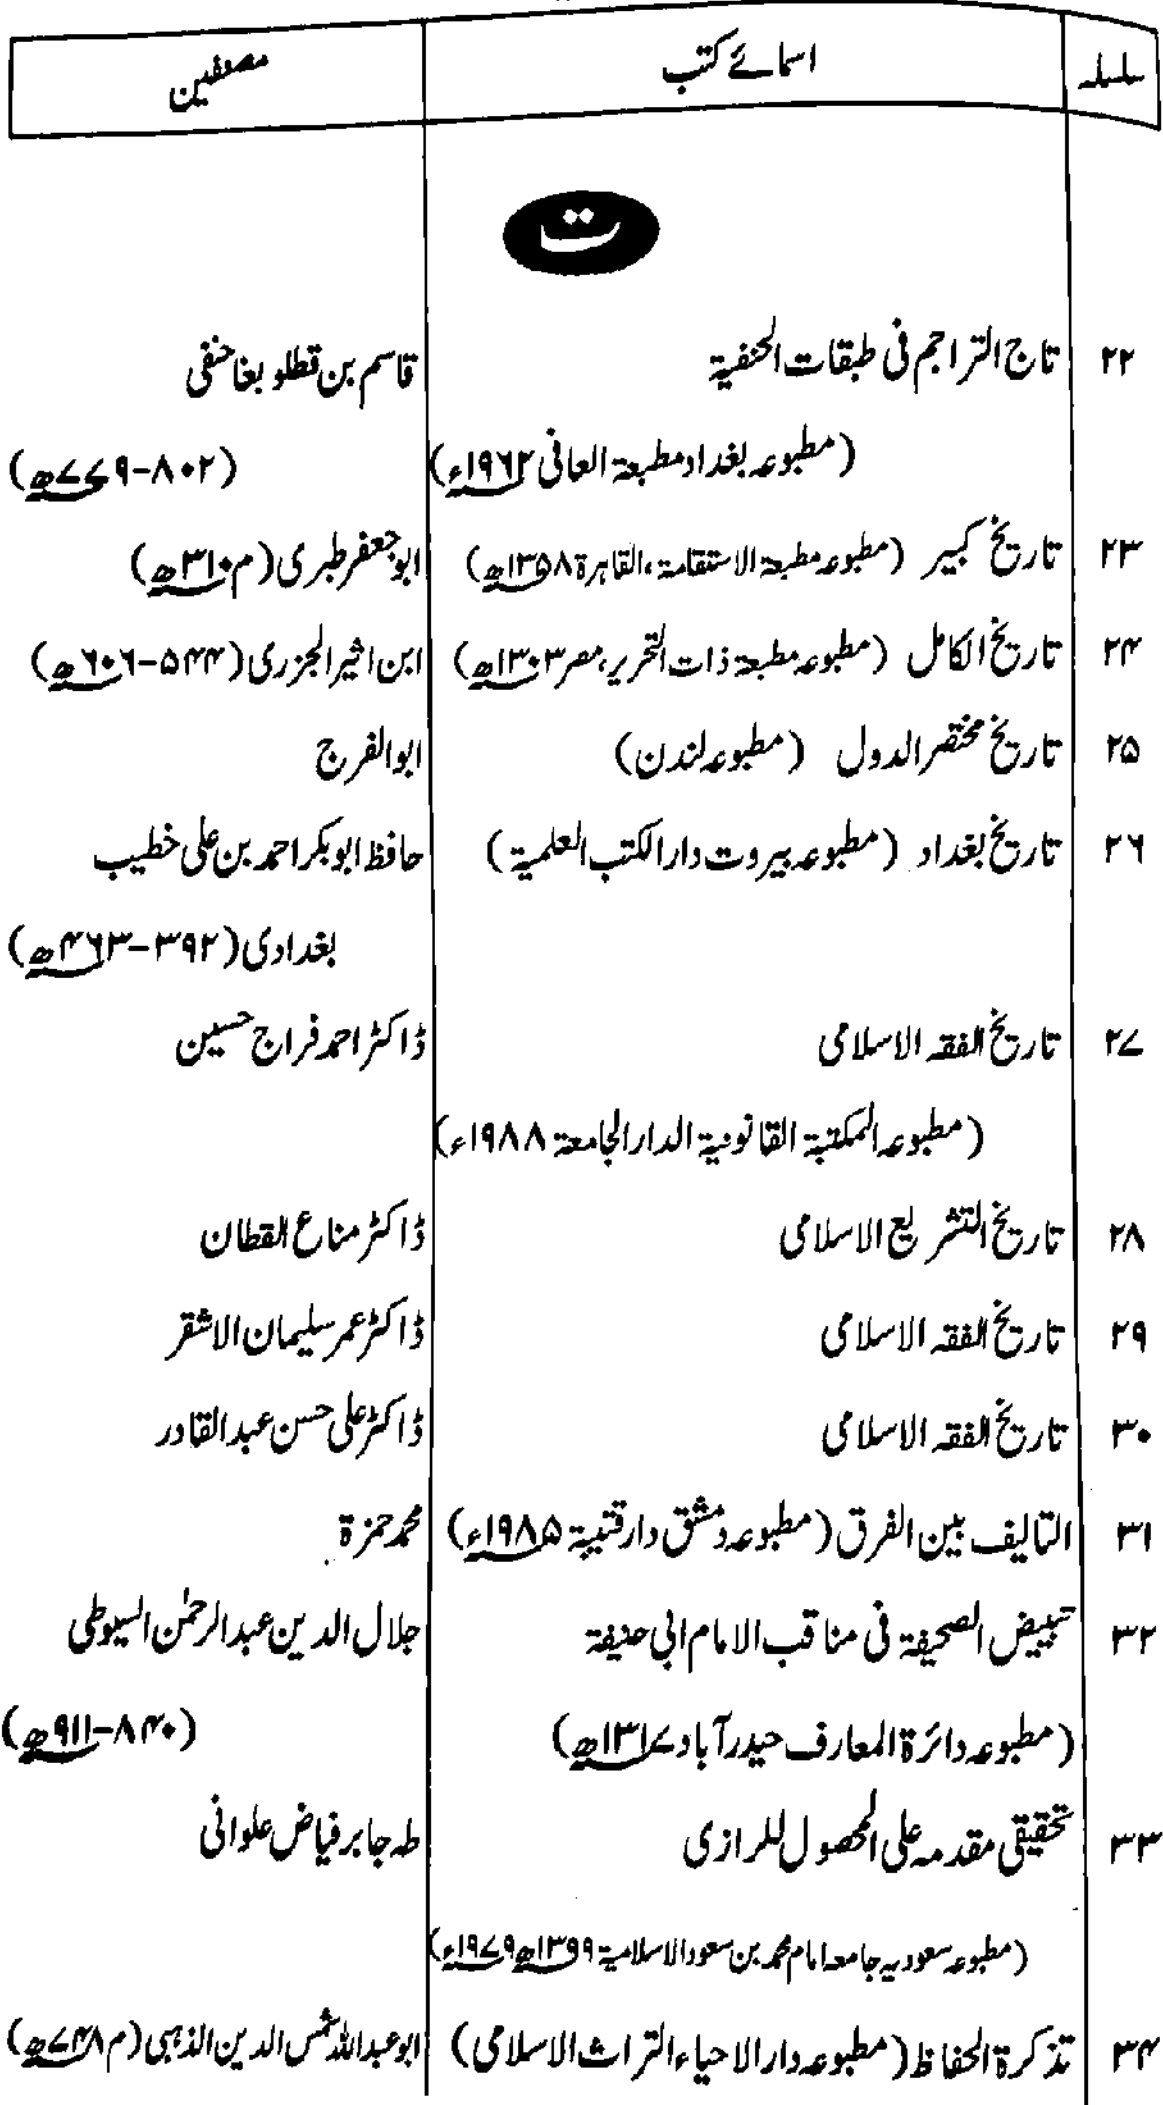 سلسلہ اسمائے کتب مصنفین
ت
۲۲ تاج التراجم فی طبقات الحنفیۃ قاسم بن قطلوبغا حنفی
(مطبوعہ بغداد مطبعۃ العانی ۱۹۶۲ء) (۸۰۲-۷۷۹ھ)
۲۳ تاریخ کبیر (مطبوعہ مطبعۃ الاستقامۃ، القاہرۃ ۱۳۵۸ھ) ابوجعفر طبری (م ۳۱۰ھ)
۲۴ تاریخ الکامل (مطبوعہ مطبعۃ ذات التحریر، مصر ۱۳۰۳ھ) ابن اثیر الجزری (۵۴۴-۶۰۶ھ)
۲۵ تاریخ مختصر الدول (مطبوعہ لندن) ابوالفرج
۲۶ تاریخ بغداد (مطبوعہ بیروت دارالکتب العلمیۃ) حافظ ابوبکر احمد بن علی خطیب
بغدادی (۳۹۲-۴۶۳ھ)
۲۷ تاریخ الفقہ الاسلامی ڈاکٹر احمد فراج حسین
(مطبوعہ المکتبۃ القانونیۃ الدار الجامعۃ ۱۹۸۸ء)
۲۸ تاریخ التشریع الاسلامی ڈاکٹر مناع القطان
۲۹ تاریخ الفقہ الاسلامی ڈاکٹر عمر سلیمان الاشقر
۳۰ تاریخ الفقہ الاسلامی ڈاکٹر علی حسن عبدالقادر
۳۱ التالیف بین الفرق (مطبوعہ دمشق دار قتیبۃ ۱۹۸۵ء) محمد حمزۃ
۳۲ تبییض الصحیفۃ فی مناقب الامام ابی حنیفۃ جلال الدین عبدالرحمٰن السیوطی
(مطبوعہ دائرۃ المعارف حیدرآباد ۱۳۱۷ھ) (۸۴۰-۹۱۱ھ)
۳۳ تحقیقی مقدمہ علی المحصول للرازی طہ جابر فیاض علوانی
(مطبوعہ سعودیہ جامعہ امام محمد بن سعود الاسلامیۃ ۱۳۹۹ھ ۱۹۷۹ء)
۳۴ تذکرۃ الحفاظ (مطبوعہ دار الاحیاء التراث الاسلامی) ابوعبداللہ شمس الدین الذہبی (م ۷۴۸ھ)